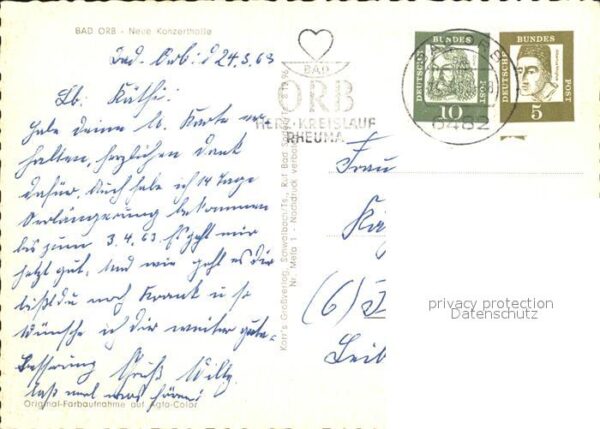 BAD ORB - Neue Konzerthalle
Bad Orb: d 24.3.63
Lb. Käthi!
Habe deine lb. Karte er-
halten, herzlichen Dank
dafür, Auch habe ich 14 Tage
Verlängerung bekommen
bis zum 3.4.63 Es geht mir
jetzt gut, und wie geht es dir
bist du noch Krank u so
wünsche ich dir weiter gute
Besserung Gruß Willy
laß mal was hören!
Original-Farbaufnahme auf Agfa-Color
Korr's Großverlag, Schwalbach/Ts., Ruf Bad
Nr. Mela 1 - Nachdruck verboten
BAD
ORB
HERZ · KREISLAUF
RHEUMA
6482
DEUTSCHE
BUNDES
POST
10
DEUTSCHE
BUNDES
POST
5
Frau
(6)
privacy protection
Datenschutz